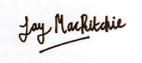 Jay MacRitchie